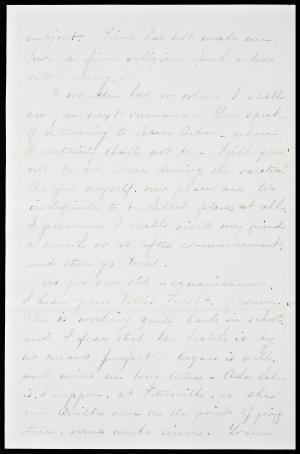 subject. Time has not made me
feel a fine religious spirit a less
vital thing.
I wonder how or when I shall
see you next summer. You speak
of returning to Ann Arbor, where
I certainly shall not be. Will you
not be at home during the vacation?
As for myself, my plans are too
indefinite to be called plans at all.
I presume I shall visit my friends
a month or so after commencement,
and then go West.
As for our old acquaintances,
I hear from Miss
She is working quite hard in school,
and I fear that her health is by
no means perfect. is well,
and writes me long letters. Ada
is, I suppose, at , as she
and were on the point of going
there some weeks since.